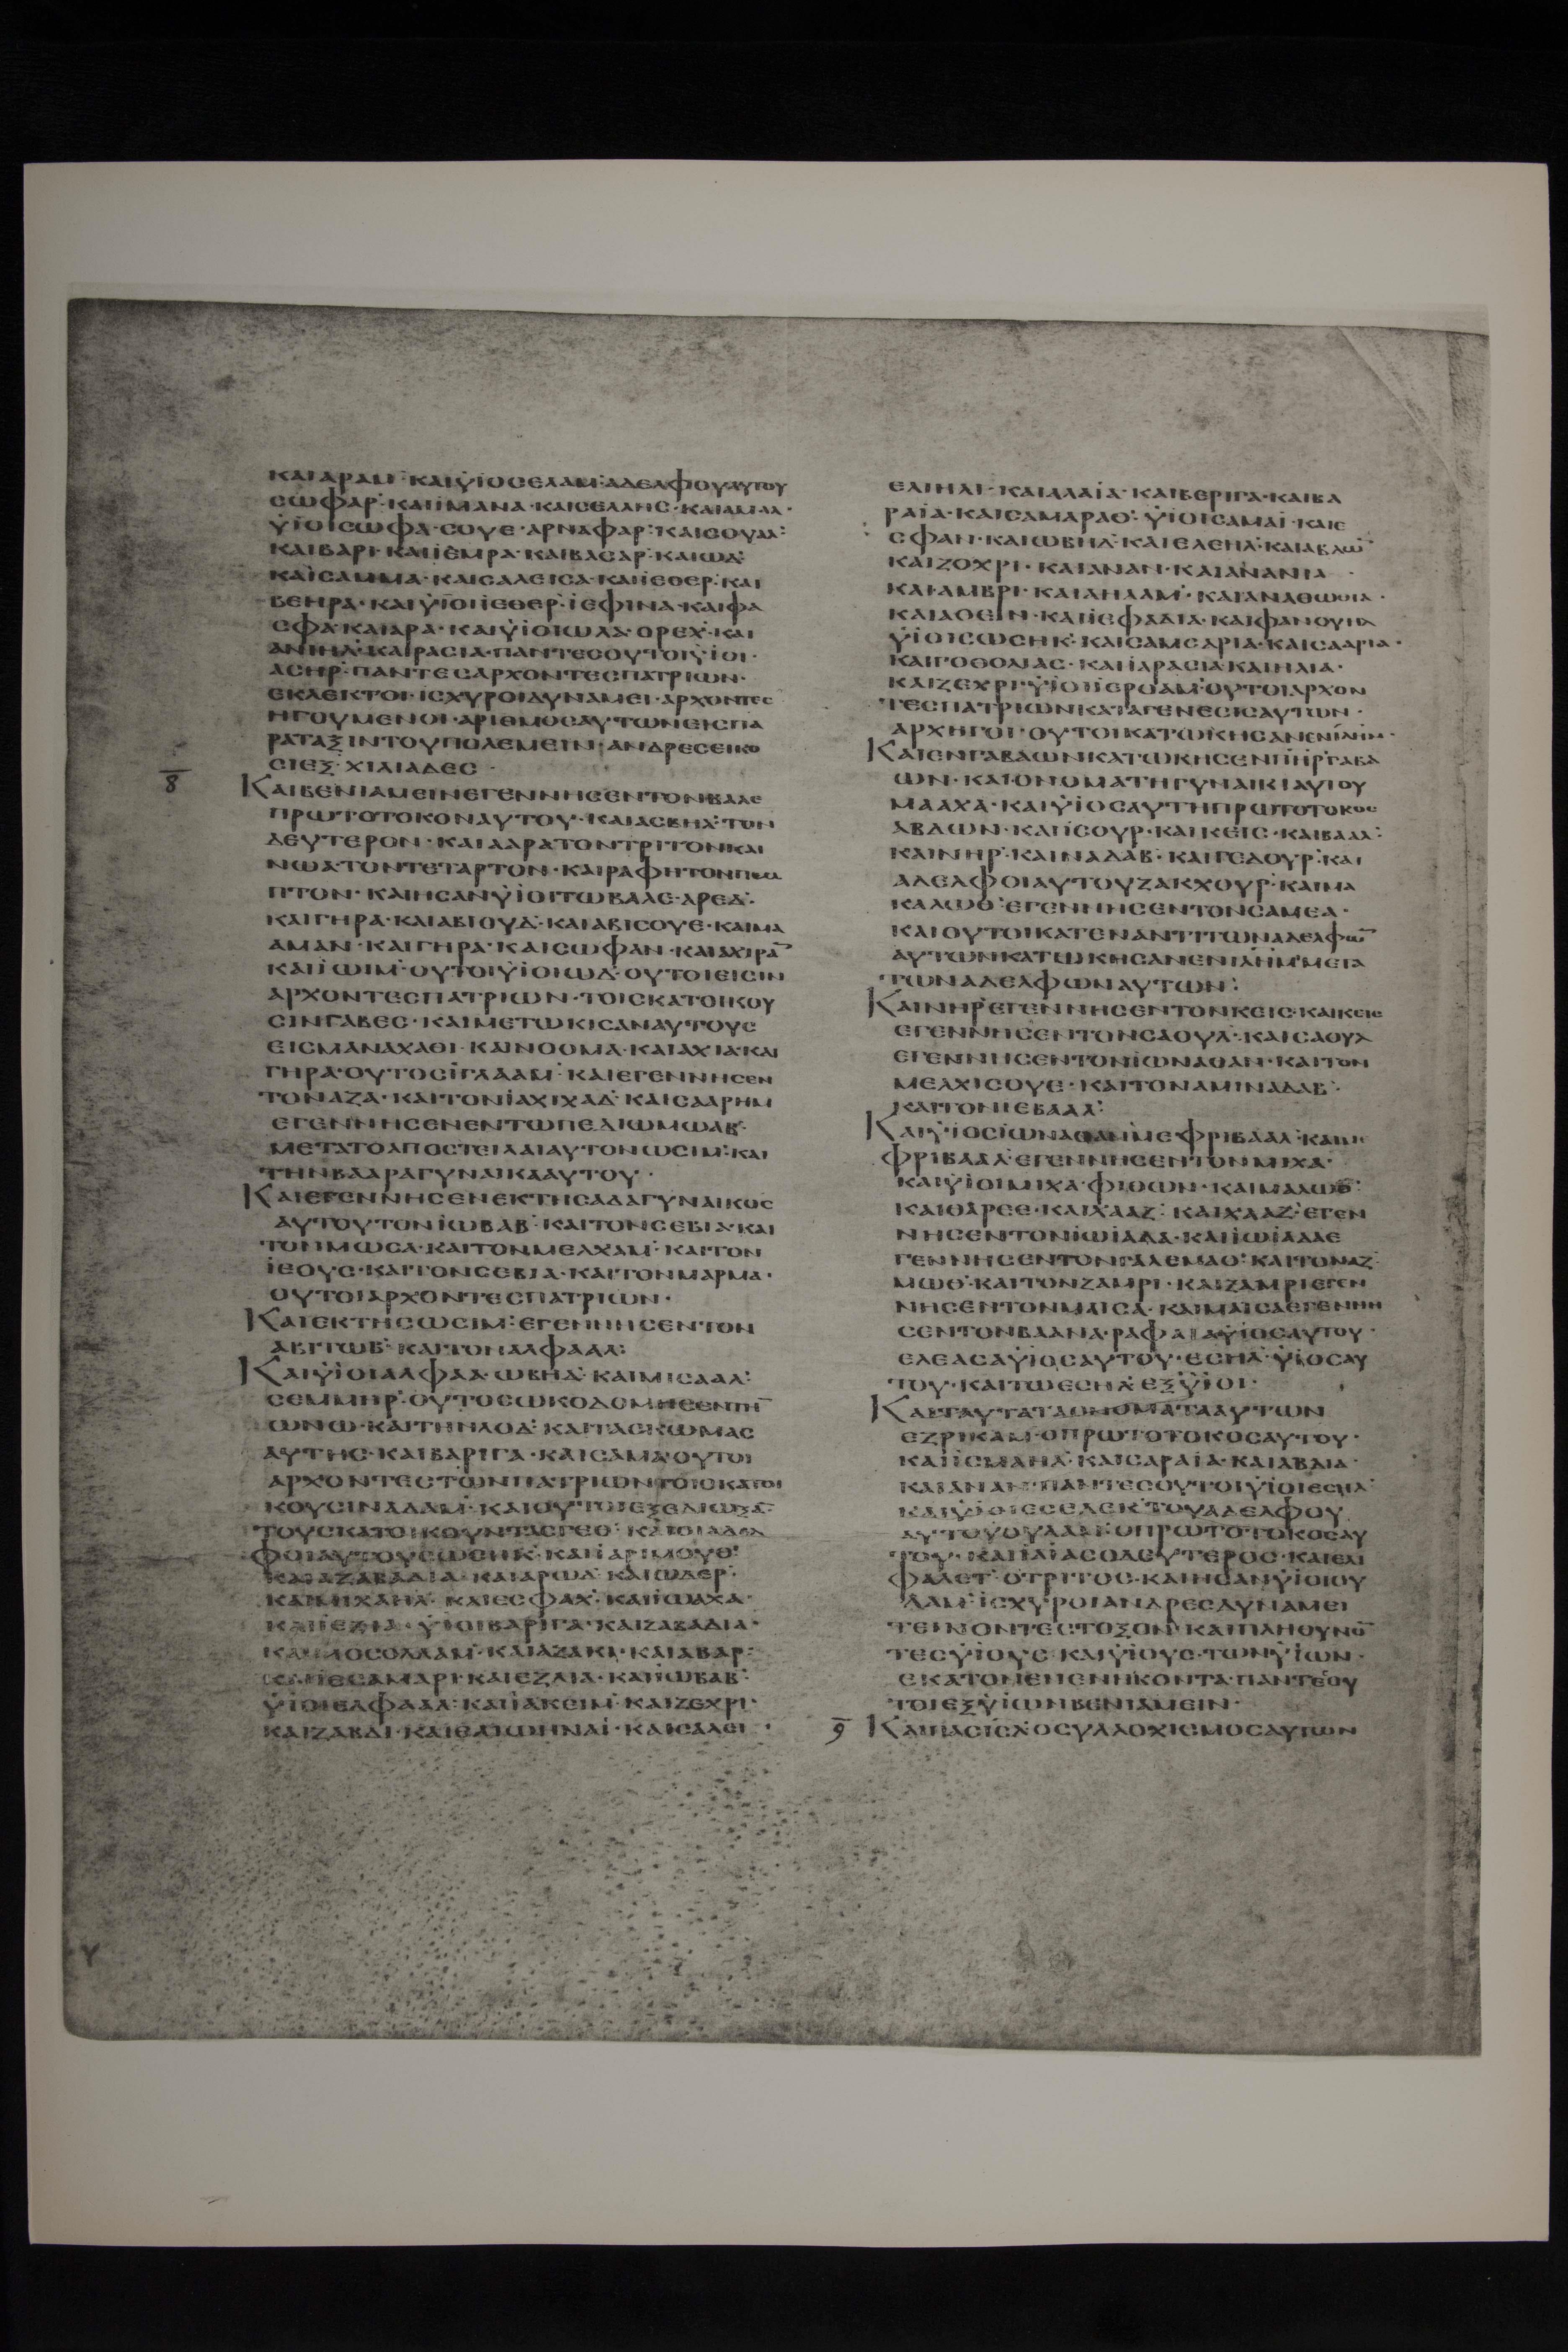 ΚΑΙΑΡΑΜ· ΚΑΙΫΙΟΣΕΛΑΜ: ΑΔΕΛΦΟΥΑΥΤΟΥ
ΣΩΦΑΡ· ΚΑΙΙΜΑΝΑ· ΚΑΙΣΕΛΛΗΣ· ΚΑΙΑΜΑΑ·
ΫΙΟΙΣΩΦΑ· ΣΟΥΕ· ΑΡΝΑΦΑΡ: ΚΑΙΣΟΥΛΑ:
ΚΑΙΒΑΡΙ· ΚΑΙΪΕΜΡΑ· ΚΑΙΒΑΣΑΡ· ΚΑΙΩΔ·
ΚΑΙΣΑΜΜΑ· ΚΑΙΣΑΛΕΙΣΑ· ΚΑΙΪΕΘΕΡ· ΚΑΙ
ΒΕΗΡΑ· ΚΑΙΫΙΟΙΪΕΘΕΡ· ΪΕΦΙΝΑ· ΚΑΙΦΑ
ΣΦΑ· ΚΑΙΑΡΑ· ΚΑΙΫΙΟΙΩΛΑ· ΟΡΕΧ· ΚΑΙ
ΑΝΙΗΛ· ΚΑΙΡΑΣΙΑ· ΠΑΝΤΕΣΟΥΤΟΙΫΙΟΙ·
ΑΣΗΡ· ΠΑΝΤΕΣΑΡΧΟΝΤΕΣΠΑΤΡΙΩΝ·
ΕΚΛΕΚΤΟΙ· ΙΣΧΥΡΟΙΔΥΝΑΜΕΙ· ΑΡΧΟΝΤΕΣ
ΗΓΟΥΜΕΝΟΙ· ΑΡΙΘΜΟΣΑΥΤΩΝΕΙΣΠΑ
ΡΑΤΑΞΙΝΤΟΥΠΟΛΕΜΕΙΝ· ΑΝΔΡΕΣΕΙΚΟ
ΣΙΕΞ· ΧΙΛΙΑΔΕΣ·
8
ΚΑΙΒΕΝΙΑΜΕΙΝΕΓΕΝΝΗΣΕΝΤΟΝΒΑΛΕ
ΠΡΩΤΟΤΟΚΟΝΑΥΤΟΥ· ΚΑΙΑΣΒΗΛ· ΤΟΝ
ΔΕΥΤΕΡΟΝ· ΚΑΙΑΑΡΑΤΟΝΤΡΙΤΟΝΚΑΙ
ΝΩΑ· ΤΟΝΤΕΤΑΡΤΟΝ· ΚΑΙΡΑΦΗΤΟΝΠΕΜ
ΠΤΟΝ· ΚΑΙΗΣΑΝΫΙΟΙΤΩΒΑΛΕ· ΑΡΕΔ·
ΚΑΙΓΗΡΑ· ΚΑΙΑΒΙΟΥΔ· ΚΑΙΑΒΙΣΟΥΕ· ΚΑΙΜΑ
ΑΜΑΝ· ΚΑΙΓΗΡΑ· ΚΑΙΣΩΦΑΝ· ΚΑΙΑΧΙΡΑ̅
ΚΑΙΪΩΙΜ· ΟΥΤΟΙΫΙΟΙΩΔ· ΟΥΤΟΙΕΙΣΙΝ
ΑΡΧΟΝΤΕΣΠΑΤΡΙΩΝ· ΤΟΙΣΚΑΤΟΙΚΟΥ
ΣΙΝΓΑΒΕΕ· ΚΑΙΜΕΤΩΚΙΣΑΝΑΥΤΟΥΣ
ΕΙΣΜΑΝΑΧΑΘΙ· ΚΑΙΝΟΟΜΑ· ΚΑΙΑΧΙΑ· ΚΑΙ
ΓΗΡΑ· ΟΥΤΟΣΪΓΛΑΑΜ· ΚΑΙΕΓΕΝΝΗΣΕΝ
ΤΟΝΑΖΑ· ΚΑΙΤΟΝΪΑΧΙΧΑΔ· ΚΑΙΣΑΑΡΗΜ
ΕΓΕΝΝΗΣΕΝΕΝΤΩΠΕΔΙΩΜΩΑΒ·
ΜΕΤΑΤΟΑΠΟΣΤΕΙΛΑΙΑΥΤΟΝΩΣΙΜ· ΚΑΙ
ΤΗΝΒΑΑΡΑΓΥΝΑΙΚΑΑΥΤΟΥ·
ΚΑΙΕΓΕΝΝΗΣΕΝΕΚΤΗΣΑΔΑΓΥΝΑΙΚΟΣ
ΑΥΤΟΥΤΟΝΪΩΒΑΒ· ΚΑΙΤΟΝΣΕΒΙΑ· ΚΑΙ
ΤΟΝΜΩΣΑ· ΚΑΙΤΟΝΜΕΛΧΑΜ· ΚΑΙΤΟΝ
ΪΕΟΥΣ· ΚΑΙΤΟΝΣΕΒΙΑ· ΚΑΙΤΟΝΜΑΡΜΑ·
ΟΥΤΟΙΑΡΧΟΝΤΕΣΠΑΤΡΙΩΝ·
ΚΑΙΕΚΤΗΣΩΣΙΜ: ΕΓΕΝΝΗΣΕΝΤΟΝ
ΑΒΙΤΩΒ· ΚΑΙΤΟΝΑΛΦΑΑΛ:
ΚΑΙΫΙΟΙΑΛΦΑΑΔ· ΩΒΗΔ· ΚΑΙΜΙΣΑΑΛ·
ΣΕΜΜΗΡ· ΟΥΤΟΣΩΚΟΔΟΜΗΣΕΝΤΗ̅
ΩΝΩ· ΚΑΙΤΗΝΛΟΔ· ΚΑΙΤΑΣΚΩΜΑΣ
ΑΥΤΗΣ· ΚΑΙΒΑΡΙΓΑ· ΚΑΙΣΑΜΑ· ΟΥΤΟΙ
ΑΡΧΟΝΤΕΣΤΩΝΠΑΤΡΙΩΝΤΟΙΣΚΑΤΟΙ
ΚΟΥΣΙΝΑΔΑΜ· ΚΑΙΟΥΤΟΙΕΞΕΔΙΩΞΑ̅
ΤΟΥΣΚΑΤΟΙΚΟΥΝΤΑΣΓΕΘ· ΚΑΙΟΙΑΔΕΛ
ΦΟΙΑΥΤΟΥΣΩΣΗΚ· ΚΑΙΪΑΡΙΜΟΥΘ·
ΚΑΙΑΖΑΒΑΔΙΑ· ΚΑΙΑΡΩΔ· ΚΑΙΩΔΕΡ·
ΚΑΙΜΙΧΑΗΛ· ΚΑΙΕΣΦΑΧ· ΚΑΙΪΩΑΧΑ·
ΚΑΙΕΖΙΑ· ΫΙΟΙΒΑΡΙΓΑ· ΚΑΙΖΑΒΑΔΙΑ·
ΚΑΙΜΟΣΟΛΛΑΜ· ΚΑΙΑΖΑΚΙ· ΚΑΙΑΒΑΡ·
ΚΑΙΪΕΣΑΜΑΡΙ· ΚΑΙΕΖΛΙΑ· ΚΑΙΪΩΒΑΒ·
ΫΙΟΙΕΛΦΑΑΛ: ΚΑΙΪΑΚΕΙΜ· ΚΑΙΖΕΧΡΙ·
ΚΑΙΖΑΒΔΙ· ΚΑΙΕΛΙΩΗΝΑΙ· ΚΑΙΣΑΛΕΙ·
ΕΛΙΗΛΙ· ΚΑΙΑΛΑΪΑ· ΚΑΙΒΕΡΙΓΑ· ΚΑΙΒΑ
ΡΑΪΑ· ΚΑΙΣΑΜΑΡΑΘ· ΫΙΟΙΣΑΜΑΪ· ΚΑΙΕ
ΣΦΑΝ· ΚΑΙΩΒΗΔ· ΚΑΙΕΛΕΗΛ· ΚΑΙΑΒΔΩ̅
ΚΑΙΖΟΧΡΙ· ΚΑΙΑΝΑΝ· ΚΑΙΑΝΑΝΙΑ·
ΚΑΙΑΜΒΡΙ· ΚΑΙΑΗΛΑΜ· ΚΑΙΑΝΑΘΩΘΙΑ·
ΚΑΙΑΘΕΙΝ· ΚΑΙΪΕΦΑΔΙΑ· ΚΑΙΦΑΝΟΥΗΛ
ΫΙΟΙΣΩΣΗΚ· ΚΑΙΣΑΜΣΑΡΙΑ· ΚΑΙΣΑΑΡΙΑ·
ΚΑΙΓΟΘΟΛΙΑΣ· ΚΑΙΪΑΡΑΣΙΑ· ΚΑΙΗΛΙΑ·
ΚΑΙΖΕΧΡΙ· ΫΙΟΙΪΕΡΟΑΜ· ΟΥΤΟΙΑΡΧΟΝ
ΤΕΣΠΑΤΡΙΩΝΚΑΤΑΓΕΝΕΣΕΙΣΑΥΤΩΝ·
ΑΡΧΗΓΟΙ· ΟΥΤΟΙΚΑΤΩΚΗΣΑΝΕΝΪΛΗΜ·
ΚΑΙΕΝΓΑΒΑΩΝΚΑΤΩΚΗΣΕΝΠΗΡΓΑΒΑ
ΩΝ· ΚΑΙΟΝΟΜΑΤΗΓΥΝΑΙΚΙΑΥΤΟΥ
ΜΑΑΧΑ· ΚΑΙΫΙΟΣΑΥΤΗΠΡΩΤΟΤΟΚΟΣ
ΑΒΔΩΝ· ΚΑΙΪΣΟΥΡ· ΚΑΙΚΕΙΣ· ΚΑΙΒΑΑΛ·
ΚΑΙΝΗΡ· ΚΑΙΝΑΔΑΒ· ΚΑΙΓΕΔΟΥΡ· ΚΑΙ
ΑΔΕΛΦΟΙΑΥΤΟΥΖΑΚΧΟΥΡ· ΚΑΙΜΑ
ΚΑΛΩΘ· ΕΓΕΝΝΗΣΕΝΤΟΝΣΑΜΕΑ·
ΚΑΙΟΥΤΟΙΚΑΤΕΝΑΝΤΙΤΩΝΑΔΕΛΦΩ̅
ΑΥΤΩΝΚΑΤΩΚΗΣΑΝΕΝΪΛΗΜ· ΜΕΤΑ
ΤΩΝΑΔΕΛΦΩΝΑΥΤΩΝ:
ΚΑΙΝΗΡ· ΕΓΕΝΝΗΣΕΝΤΟΝΚΕΙΣ· ΚΑΙΚΕΙΣ
ΕΓΕΝΝΗΣΕΝΤΟΝΣΑΟΥΛ· ΚΑΙΣΑΟΥΛ
ΕΓΕΝΝΗΣΕΝΤΟΝΪΩΝΑΘΑΝ· ΚΑΙΤΟΝ
ΜΕΛΧΙΣΟΥΕ· ΚΑΙΤΟΝΑΜΙΝΑΔΑΒ·
ΚΑΙΤΟΝΙΕΒΑΑΛ:
ΚΑΙΫΙΟΣΪΩΝΑΘΑΝ· ΜΕΦΡΙΒΑΑΛ· ΚΑΙΜΕ
ΦΡΙΒΑΑΛ· ΕΓΕΝΝΗΣΕΝΤΟΝΜΙΧΑ·
ΚΑΙΫΙΟΙΜΙΧΑ· ΦΙΘΩΝ· ΚΑΙΜΑΛΩΘ·
ΚΑΙΘΑΡΕΕ· ΚΑΙΧΑΑΖ· ΚΑΙΧΑΑΖ· ΕΓΕΝ
ΝΗΣΕΝΤΟΝΪΩΪΑΔΑ· ΚΑΙΪΩΪΑΔΑΕ
ΓΕΝΝΗΣΕΝΤΟΝΓΑΛΕΜΑΘ· ΚΑΙΤΟΝΑΖ
ΜΩΘ· ΚΑΙΤΟΝΖΑΜΡΙ· ΚΑΙΖΑΜΡΙΕΓΕΝ
ΝΗΣΕΝΤΟΝΜΑΙΣΑ· ΚΑΙΜΑΙΣΑΕΓΕΝΝΗ
ΣΕΝΤΟΝΒΑΑΝΑ· ΡΑΦΑΙΑΫΙΟΣΑΥΤΟΥ·
ΕΛΕΑΣΑΫΙΟΣΑΥΤΟΥ· ΕΣΗΛ· ΫΙΟΣΑΥ
ΤΟΥ· ΚΑΙΤΩΕΣΗΛ· ΕΞΫΙΟΙ·
ΚΑΙΤΑΥΤΑΤΑΟΝΟΜΑΤΑΑΥΤΩΝ
ΕΖΡΙΚΑΜ· ΟΠΡΩΤΟΤΟΚΟΣΑΥΤΟΥ·
ΚΑΙΪΣΜΑΗΛ· ΚΑΙΣΑΡΑΪΑ· ΚΑΙΑΒΔΙΑ·
ΚΑΙΑΝΑΝ· ΠΑΝΤΕΣΟΥΤΟΙΫΙΟΙΕΣΗΛ·
ΚΑΙΫΙΟΙΕΣΕΛΕΚ· ΤΟΥΑΔΕΛΦΟΥ
ΑΥΤΟΥ· ΟΥΛΑΜ· ΟΠΡΩΤΟΤΟΚΟΣΑΥ
ΤΟΥ· ΚΑΙΪΑΪΑΣΟΔΕΥΤΕΡΟΣ· ΚΑΙΕΛΙ
ΦΑΛΕΤ· ΟΤΡΙΤΟΣ· ΚΑΙΗΣΑΝΫΙΟΙΟΥ
ΛΑΜ· ΙΣΧΥΡΟΙΑΝΔΡΕΣΔΥΝΑΜΕΙ
ΤΕΙΝΟΝΤΕΣΤΟΞΟΝ· ΚΑΙΠΛΗΘΥΝΟ̅
ΤΕΣΫΙΟΥΣ· ΚΑΙΫΙΟΥΣ· ΤΩΝΫΙΩΝ·
ΕΚΑΤΟΝΠΕΝΤΗΚΟΝΤΑ· ΠΑΝΤΕΣΟΥ
ΤΟΙΕΞΫΙΩΝΒΕΝΙΑΜΕΙΝ·
9 ΚΑΙΠΑΣΪΣΛ· ΟΣΥΛΛΟΧΙΣΜΟΣΑΥΤΩΝ